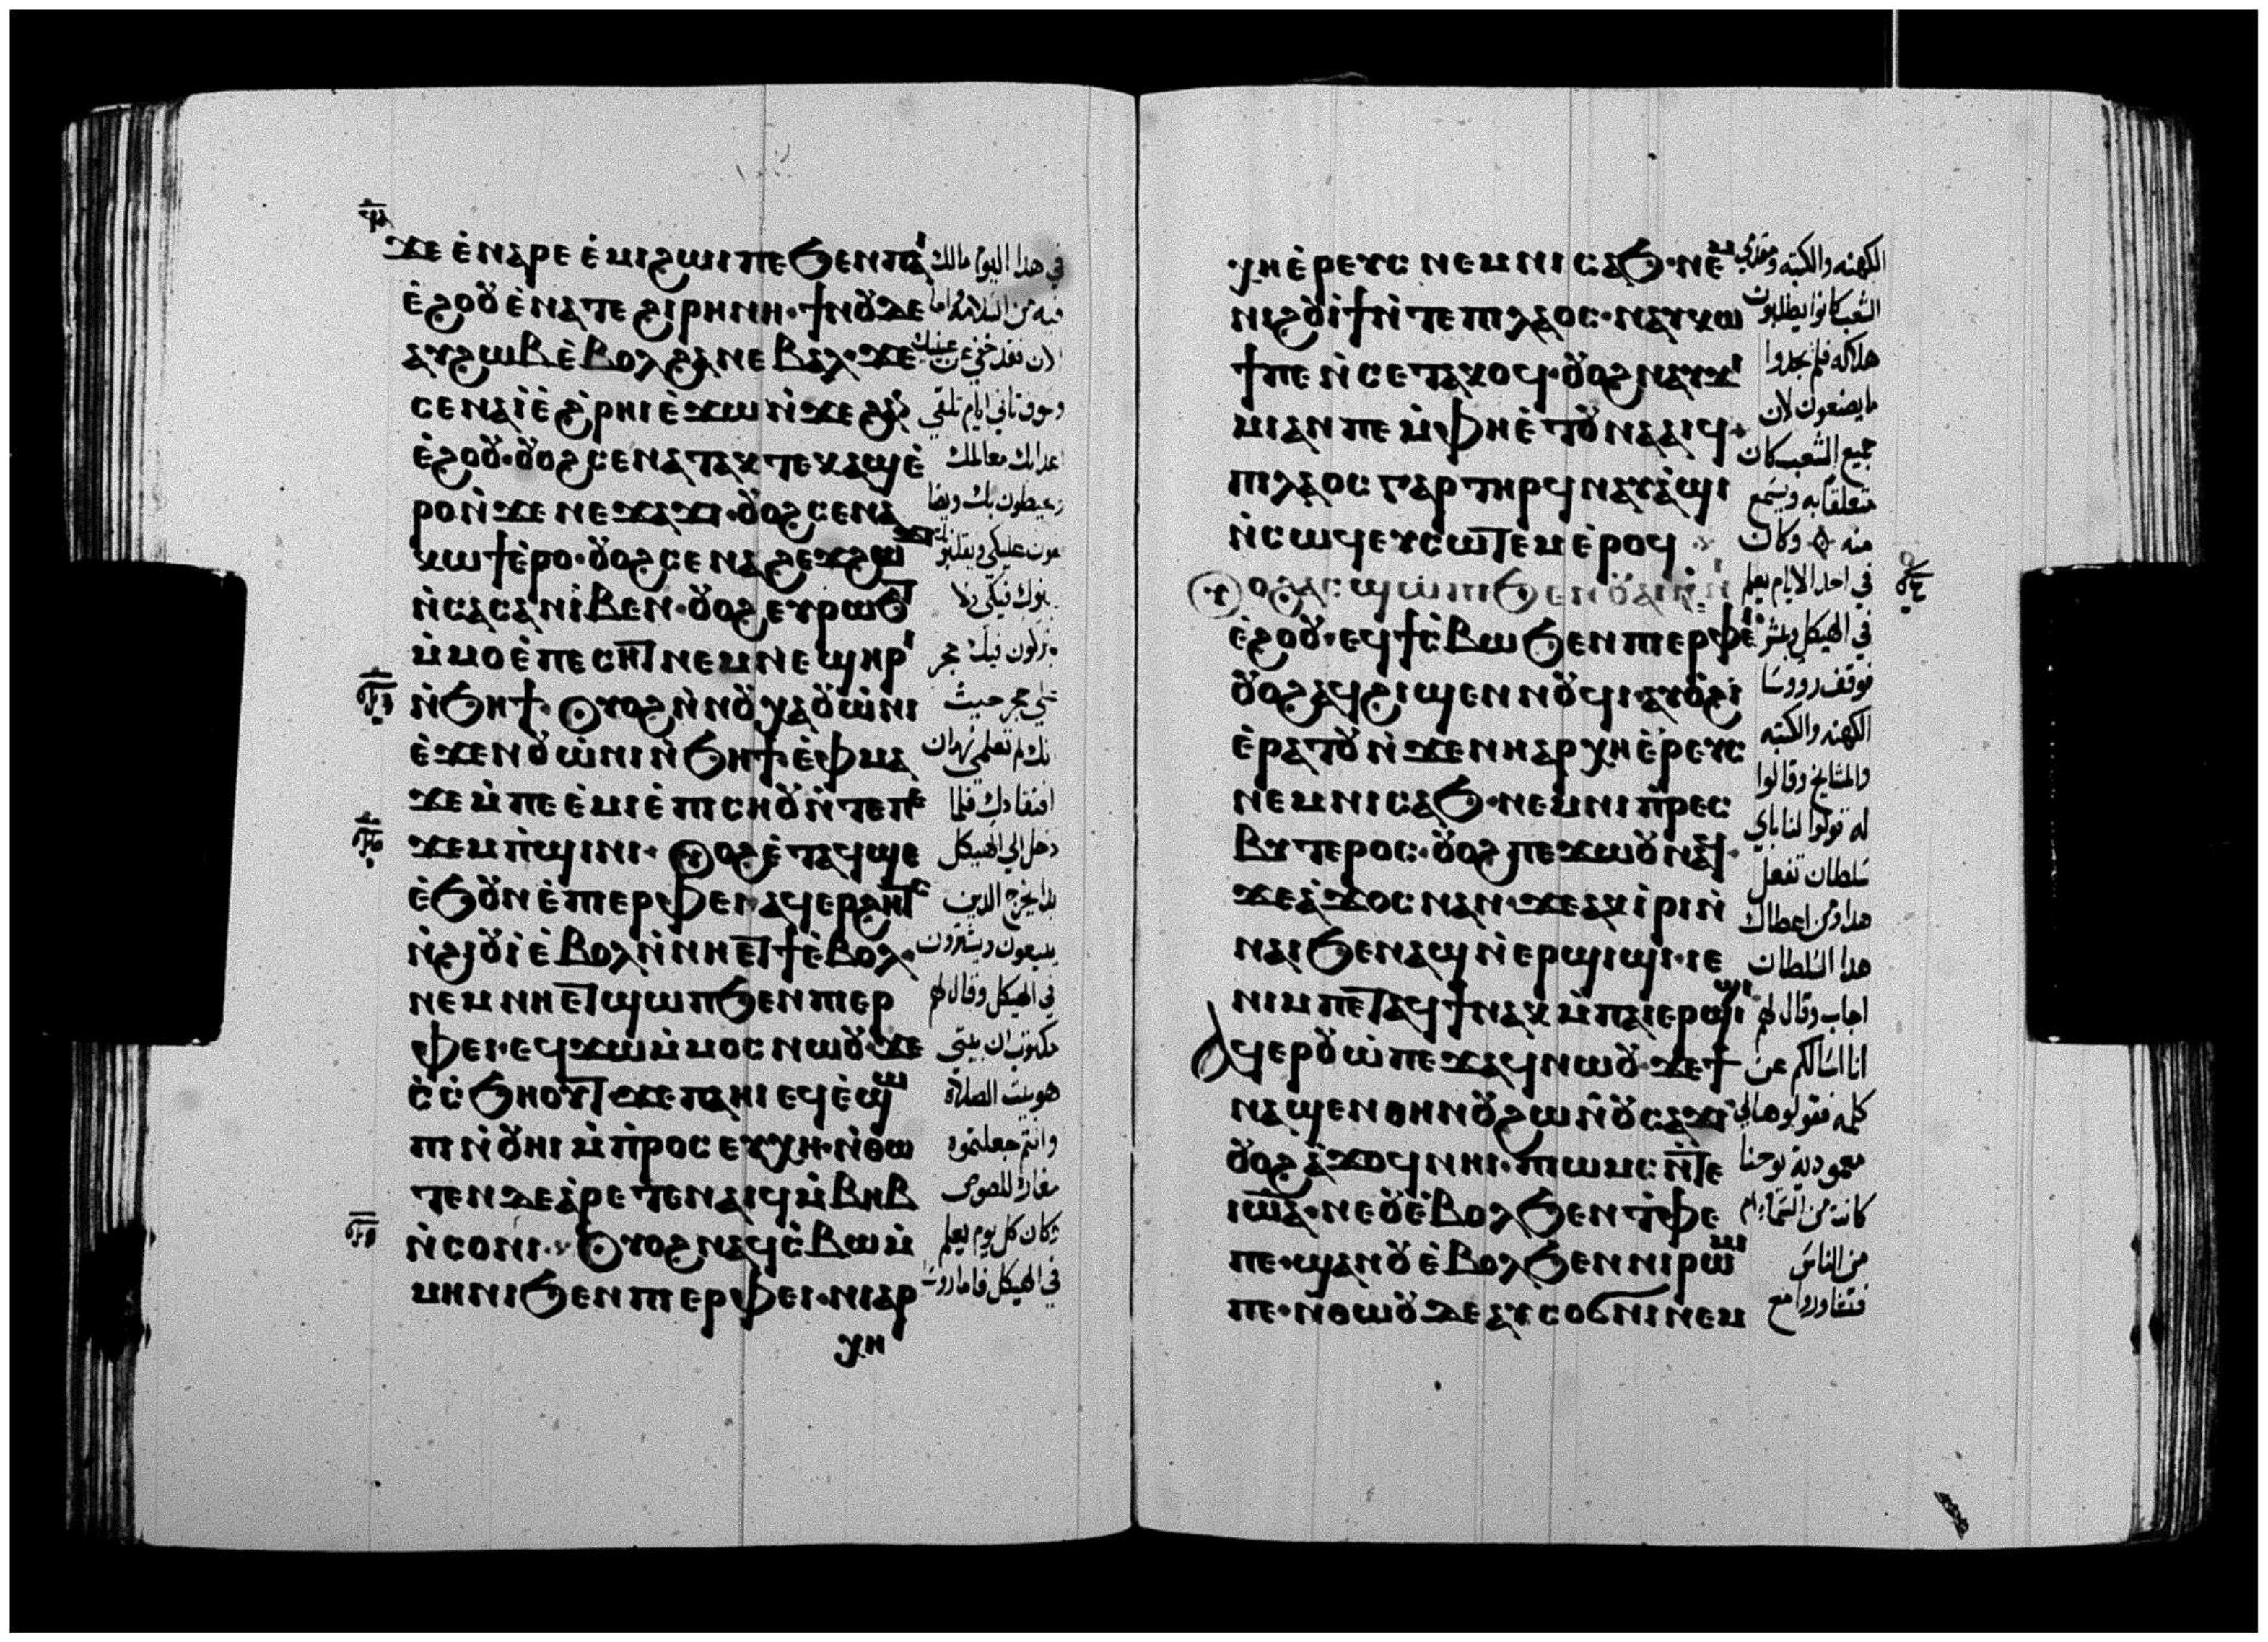 ϫⲉ ⲉ̀ⲛⲁⲣⲉ ⲉ̀ⲙⲓϩⲱⲓ ⲡⲉ ϧⲉⲛ ⲡⲁⲓ
ⲉ̀ϩⲟⲟⲩ ⲉ̀ⲛⲁ ⲧⲉ ϩⲓⲣⲏⲛⲏ· ϯⲛⲟⲩ ⲇⲉ
ⲁⲩϩⲱⲃ ⲉ̀ⲃⲟⲗϩⲁ ⲛⲉⲃⲁⲗ· ϫⲉ
ⲥⲉⲛⲁⲓ̀ ⲉ̀ϩ̀ⲣⲏⲓ ⲉ̀ϫⲱ ⲛ̀ϫⲉ ϩⲁⲛ
ⲉ̀ϩⲟⲟⲩ· ⲟⲩⲟϩ ⲥⲉⲛⲁⲧⲁⲕⲧⲉ ⲕⲁϣ ⲉ̀
ⲣⲟ ⲛ̀ϫⲉ ⲛⲉϫⲁϫⲓ· ⲟⲩⲟϩ ⲥⲉⲛⲁ
ⲕⲱϯ ⲉ̀ⲣⲟ· ⲟⲩⲟϩ ⲥⲉⲛⲁϩⲉϫϩⲱϫⲓ
ⲛ̀ⲥⲁⲥⲁ ⲛⲓⲃⲉⲛ· ⲟⲩⲟϩ ⲉⲩⲣⲱϧⲧ
ⲙ̀ⲙⲟ ⲉ̀ⲡⲉⲥⲏⲧ ⲛⲉⲙ ⲛⲉϣⲏⲣⲓ
ⲛ̀ϧⲏϯ· ⲟⲩⲟϩ ⲛ̀ⲛⲟⲩⲭⲁ ⲟⲩⲱ̀ⲛⲓ
ⲉ̀ϫⲉⲛ ⲟⲩⲱ̀ⲛⲓ ⲛ̀ϧⲏϯ· ⲉ̀ⲫⲙⲁ
ϫⲉ ⲙ̀ⲡⲉ ⲉ̀ⲙⲓ ⲉ̀ⲡⲓⲥⲏⲟⲩ ⲛ̀ⲧⲉ ⲡⲉ
ϫⲉⲙⲡ̀ϣⲓⲛⲓ· ⲟⲩⲟϩ ⲉ̀ⲧⲁϥϣⲉ
ⲉ̀ϧⲟⲩⲛ ⲉ̀ⲡⲓⲉⲣⲫⲉⲓ ⲁϥⲉⲣϩⲏⲧⲥ
ⲛ̀ϩⲓⲟⲩⲓ̀ ⲉ̀ⲃⲟⲗ ⲛ̀ⲛⲏⲉⲧϯ ⲉ̀ⲃⲟⲗ·
ⲛⲉⲙ ⲛⲏⲉⲧϣⲱⲡ ϧⲉⲛ ⲡⲓⲉⲣ
ⲫⲉⲓ· ⲉϥϫⲱ ⲙ̀ⲙⲟⲥ ⲛⲱⲟⲩ· ϫⲉ
ⲥ̀ⲥ̀ϧⲏⲟⲩⲧ ϫⲉ ⲡⲁⲏⲓ ⲉϥⲉ̀ϣⲱ
ⲡⲓ ⲛ̀ⲟⲩⲏⲓ ⲙ̀ⲡ̀ⲣⲟⲥⲉⲩⲭⲏ· ⲛ̀ⲑⲱ
ⲧⲉⲛ ⲇⲉ ⲁ̀ⲣⲉⲧⲉⲛⲁⲓϥ ⲙ̀ⲃⲏⲃ
ⲛ̀ⲥⲟⲛⲓ· ⲟⲩⲟϩ ⲛⲁϥϯⲥ̀ⲃⲱ ⲙ̀
ⲙⲏⲛⲓ ϧⲉⲛ ⲡⲓⲉⲣⲫⲉⲓ· ⲛⲓⲁⲣ
ⲭⲏ
في هذا اليوم مالك
فيه من السلامه واما
الان فقد خفي عن عينيك
وسوف تاتي ايام تلقي
اعدايك معالمك
في الهيكل وقال لهم
مكتوب ان بيتي
هو بيت الصلاة
وانتم جعلتموه
مغارة للصوص
وكان كل يوم يعلم
في الهيكل فاما روسا
ⲭⲏⲉ̀ⲣⲉⲩⲥ ⲛⲉⲙ ⲛⲓⲥⲁϧ· ⲛⲉⲙ
ⲛⲓϩⲟⲩⲓ̀ϯ ⲛ̀ⲧⲉ ⲡⲓⲗⲁⲟⲥ· ⲛⲁⲩⲕⲱ
ϯ ⲡⲉ ⲛ̀ⲥⲉⲧⲁⲕⲟϥ· ⲟⲩⲟϩ ⲛⲁⲩϫⲓ
ⲙⲓ ⲁⲛ ⲡⲉ ⲙ̀ⲫⲏ ⲉ̀ⲧⲟⲩⲛⲁⲁⲓϥ
ⲡⲓⲗⲁⲟⲥ ⲅⲁⲣ ⲧⲏⲣϥ ⲛⲁⲩⲁ̀ϣⲓ
ⲛ̀ⲥⲱϥ ⲉⲩⲥⲱⲧⲉⲙ ⲉ̀ⲣⲟϥ
ⲟⲩⲟϩ ⲁⲥϣⲱⲡⲓ ϧⲉⲛ ⲟⲩⲁⲓ ⲛ̀ⲛⲓ
ⲉ̀ϩⲟⲟⲩ· ⲉϥϯⲥ̀ⲃⲱ ϧⲉⲛ ⲡⲓⲉⲣⲫⲉⲓ
ⲟⲩⲟϩ ⲁϥϩⲓϣⲉⲛⲛⲟⲩϥⲓ· ⲁⲩⲟϩⲓ
ⲉ̀ⲣⲁⲧⲟⲩ ⲛ̀ϫⲉ ⲛⲏⲁⲣⲭⲏⲉ̀ⲣⲉⲩⲥ
ⲛⲉⲙ ⲛⲓⲥⲁϧ· ⲛⲉⲙ ⲛⲓⲡ̀ⲣⲉⲥ
ⲃⲩⲧⲉⲣⲟⲥ· ⲟⲩⲟϩ ⲡⲉϫⲱⲟⲩ ⲛⲁϥ·
ϫⲉ ⲁ̀ϫⲟⲥ ⲛⲁⲛ· ϫⲉ ⲁⲕⲓ̀ⲣⲓ ⲛ̀
ⲛⲁⲓ ϧⲉⲛ ⲁϣ ⲛ̀ⲉⲣϣⲓϣⲓ· ⲓⲉ
ⲛⲓⲙ ⲡⲉⲧⲁϥϯ ⲛⲁⲕ ⲙ̀ⲡⲁⲓⲉⲣϣⲓϣⲓ
ⲁϥⲉⲣⲟⲩⲱ̀ ⲡⲉϫⲁϥ ⲛⲱⲟⲩ· ϫⲉ ϯ
ⲛⲁϣⲉⲛ ⲑⲏⲛⲟⲩ ϩⲱ ⲛ̀ⲟⲩⲥⲁϫⲓ
ⲟⲩⲟϩ ⲁ̀ϫⲟϥ ⲛⲏⲓ· ⲡⲓⲱⲙⲥ ⲛ̀ⲧⲉ
ⲓⲱⲁ· ⲛⲉ ⲟⲩⲉ̀ⲃⲟⲗ ϧⲉⲛ ⲧ̀ⲫⲉ
ⲡⲉ· ϣⲁⲛ ⲟⲩⲉ̀ⲃⲟⲗ ϧⲉⲛ ⲛⲓⲣⲱⲙⲓ
ⲡⲉ· ⲛ̀ⲑⲱⲟⲩ ⲇⲉ ⲁⲩⲥⲟϭⲛⲓ ⲛⲉⲙ
الكهنه والكتبه ومقدمي
الشعب كانوا يطلبون
هلاكه فلم يجدوا
ما يصنعون لان
جميع الشعب كان
متعلقا به ويسمع
منه وكان
في احد الايام يعلم
في الهيكل ويبشر
فوقف رووسا
الكهنه والكتبه
والمشايخ وقالوا
له قول لنا باي
سلطان تفعل
هدا ومن اعطاك
هدا السلطان
اجاب وقال لهم
انا اسالكم عن
كلمه فقولوها لي
معمودية يوحنا
كانت من السما ام
من الناس
فتشاوروا مع